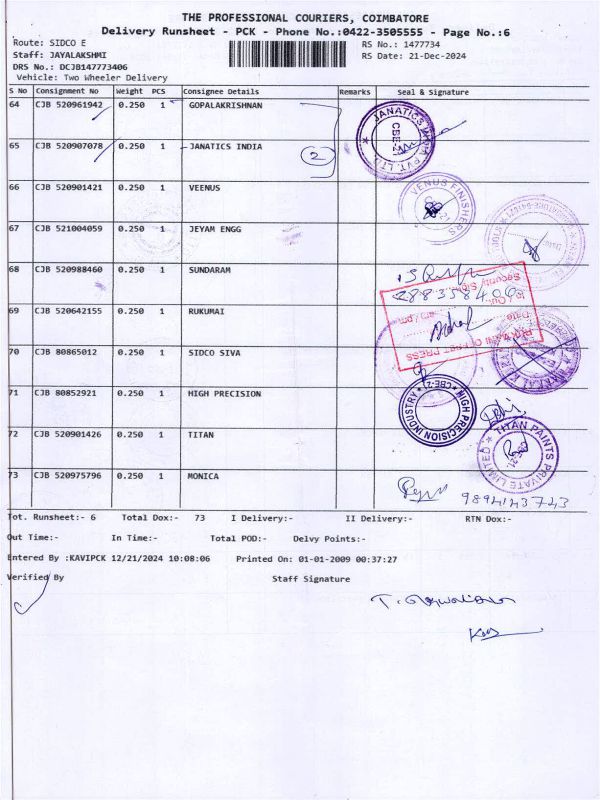 THE PROFESSIONAL COURIERS, COIMBATORE
Delivery Runsheet - PCK - Phone No.:0422-3505555 - Page No.:6
Route: SIDCO E
RS No.: 1477734
Staff: JAYALAKSHMI
RS Date: 21-Dec-2024
DRS No.: DCJB147773406
Vehicle: Two Wheeler Delivery
S No Consignment No Weight PCS Consignee Details Remarks Seal & Signature
64 CJB 520961942 0.250 1 GOPALAKRISHNAN
65 CJB 520907078 0.250 1 JANATICS INDIA 2
JANATICS INDIA PVT. LTD. CBE-21
66 CJB 520901421 0.250 1 VEENUS
VENUS FINISHERS
67 CJB 521004059 0.250 1 JEYAM ENGG
68 CJB 520988460 0.250 1 SUNDARAM
69 CJB 520642155 0.250 1 RUKUMAI
OFFSET PRESS
70 CJB 80865012 0.250 1 SIDCO SIVA
71 CJB 80852921 0.250 1 HIGH PRECISION
HIGH PRECISION INDUSTRY CBE-21
72 CJB 520901426 0.250 1 TITAN
TITAN PAINTS PRIVATE LIMITED
73 CJB 520975796 0.250 1 MONICA
9894143743
Tot. Runsheet:- 6 Total Dox:- 73 I Delivery:- II Delivery:- RTN Dox:-
Out Time:- In Time:- Total POD:- Delvy Points:-
Entered By :KAVIPCK 12/21/2024 10:08:06 Printed On: 01-01-2009 00:37:27
Verified By Staff Signature